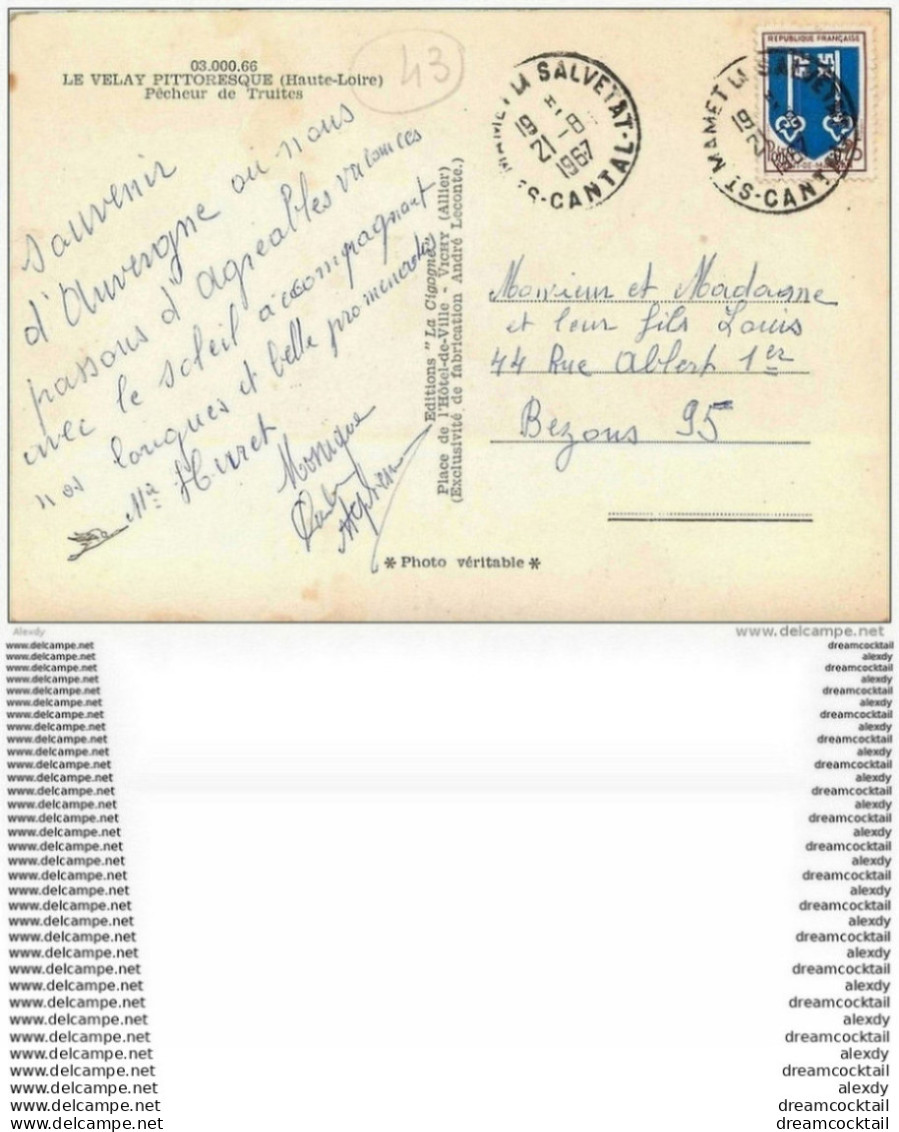 03.000.66
LE VELAY PITTORESQUE (Haute-Loire)
Pêcheur de Truites
43
Sauvenir
d'Auvergne ou nous
passons d'agreables vacances
avec le soleil accompagnant
nos longues et belle promenade
Monique
Editions "La Cigogne"
Place de l'Hôtel-de-Ville - VICHY (Allier)
(Exclusivité de fabrication André Leconte.)
* Photo véritable *
ST MAMET LA SALVETAT-
19 H
21 - 8
1967
S-CANTAL-
REPUBLIQUE FRANÇAISE
ST MAMET LA SALVETAT
19
21
1967
S-CANTAL
Monsieur et Madame
et leur fils Louis
44 Rue Albert 1er
Bezons 95
Alexdy
www.delcampe.net
www.delcampe.net dreamcocktail
www.delcampe.net alexdy
www.delcampe.net dreamcocktail
www.delcampe.net alexdy
www.delcampe.net dreamcocktail
www.delcampe.net alexdy
www.delcampe.net dreamcocktail
www.delcampe.net alexdy
www.delcampe.net dreamcocktail
www.delcampe.net alexdy
www.delcampe.net dreamcocktail
www.delcampe.net alexdy
www.delcampe.net dreamcocktail
www.delcampe.net alexdy
www.delcampe.net dreamcocktail
www.delcampe.net alexdy
www.delcampe.net dreamcocktail
www.delcampe.net alexdy
www.delcampe.net dreamcocktail
www.delcampe.net alexdy
www.delcampe.net dreamcocktail
www.delcampe.net alexdy
www.delcampe.net dreamcocktail
www.delcampe.net alexdy
www.delcampe.net dreamcocktail
www.delcampe.net alexdy
www.delcampe.net dreamcocktail
www.delcampe.net alexdy
www.delcampe.net dreamcocktail
www.delcampe.net alexdy
www.delcampe.net dreamcocktail
www.delcampe.net alexdy
www.delcampe.net dreamcocktail
www.delcampe.net dreamcocktail